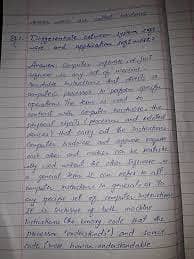 these words are called
Q2. Differentiate between system soft-
ware and application software?
Answer: Computer software is just
software is any set of machine
readable instructions that directs a
computer's processor to perform specific
operations. The term is used to
contrast with computer hardware, the
physical objects (processor and related
devices) that carry out the instructions.
Computer hardware and software require
each other and neither can be realistic-
ally used without the other. Software is
a general term. It can refer to all
computer instructions in general or to
any specific set of computer instructions.
It is inclusive of both machine
instructions (the binary code that the
processor "understands") and source
code (more human-understandable